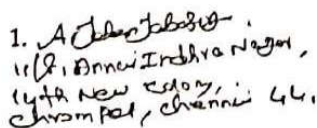 1. A
11/1, Annai Indhra Nagar,
14th New colony,
Chrompet, Chennai 44.